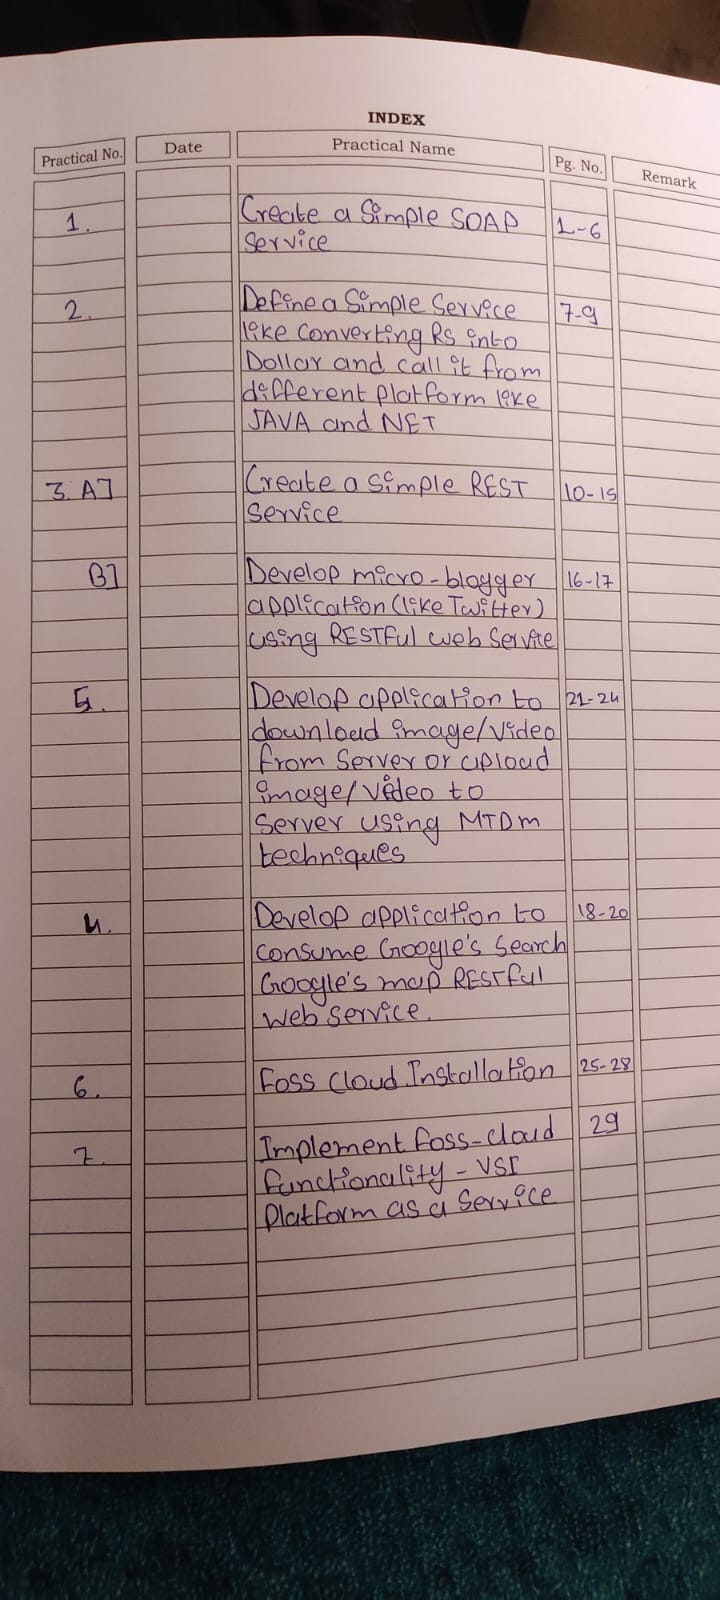 INDEX
Practical No. Date Practical Name Pg. No. Remark
1. Create a Simple SOAP 1-6
Service
2. Define a Simple Service 7-9
like Converting RS into
Dollar and call it from
different platform like
JAVA and NET
3. A] Create a Simple REST 10-15
Service
B] Develop micro-blogger 16-17
application (like Twitter)
using RESTful web Service
5. Develop application to 21-24
download image/video
from Server or upload
image/video to
Server using MTDM
techniques
4. Develop application to 18-20
consume Google's Search
Google's map RESTful
Web Service.
6. Foss Cloud Installation 25-28
7. Implement Foss-cloud 29
Functionality - VSI
Platform as a Service